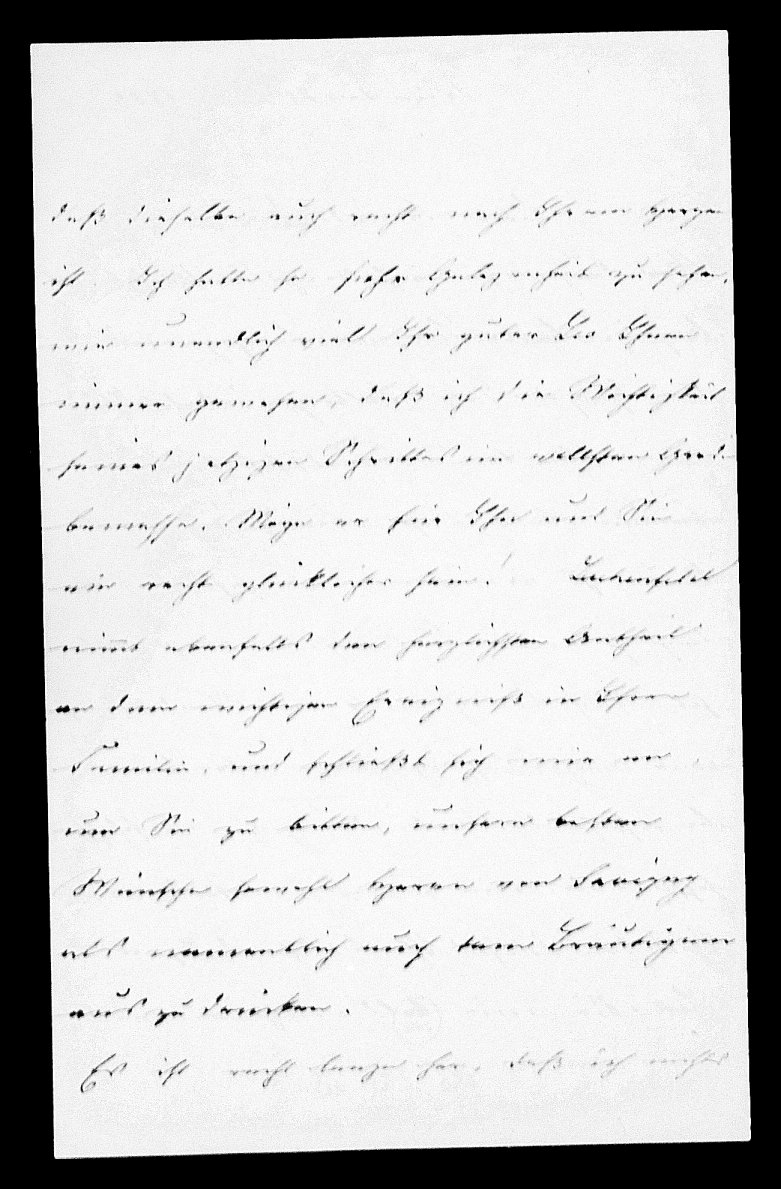 daß dieselbe auch recht nach Ihrem Herzen
ist. Ich hatte so sehr Gelegenheit zu sehen,
wie unendlich viel Ihr guter Leo Ihnen
immer gewesen, daß ich die Wichtigkeit
seines jetzigen Schrittes im vollsten Grade
bemesse. Möge er für Ihn und Sie
ein recht glücklicher sein!
nimmt ebenfalls den herzlichsten Antheil
an dem wichtigen Ereigniß in Ihrer
Familie, und schließt sich mir an,
um Sie zu bitten, unsere besten
Wünsche sowohl Herrn von Savigny
als namentlich auch dem Bräutigam
aus zu drücken.
Es ist recht lange her, daß ich nichts